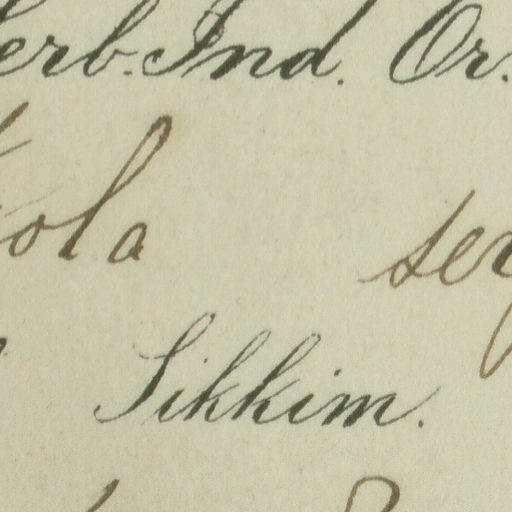 erb. Ind. Or.
ola se
Sikkim.